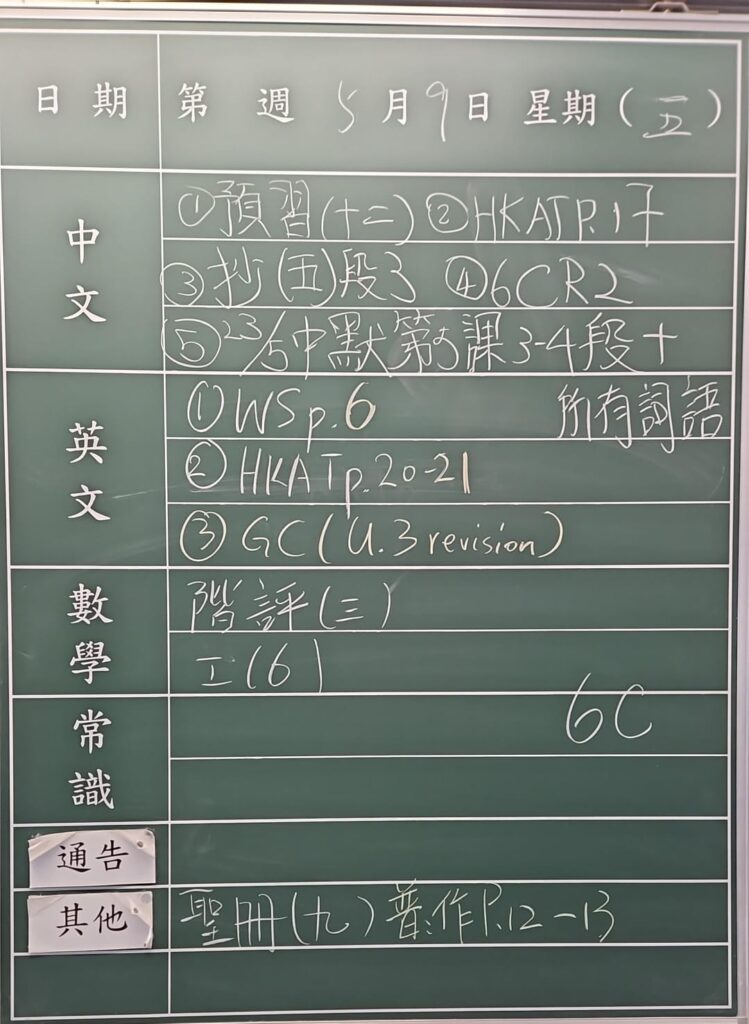 日期 第 週 5月9日 星期(五)
中文
①預習(十二) ②HKAT P.17
③抄(五)段3 ④6CR2
⑤23/5中默第5課3-4段+
所有詞語
英文
①WS p.6
②HKAT p.20-21
③GC (U.3 revision)
數學
階評(三)
工(6)
常識
6C
通告
其他
聖冊(九) 普:作P.12-13